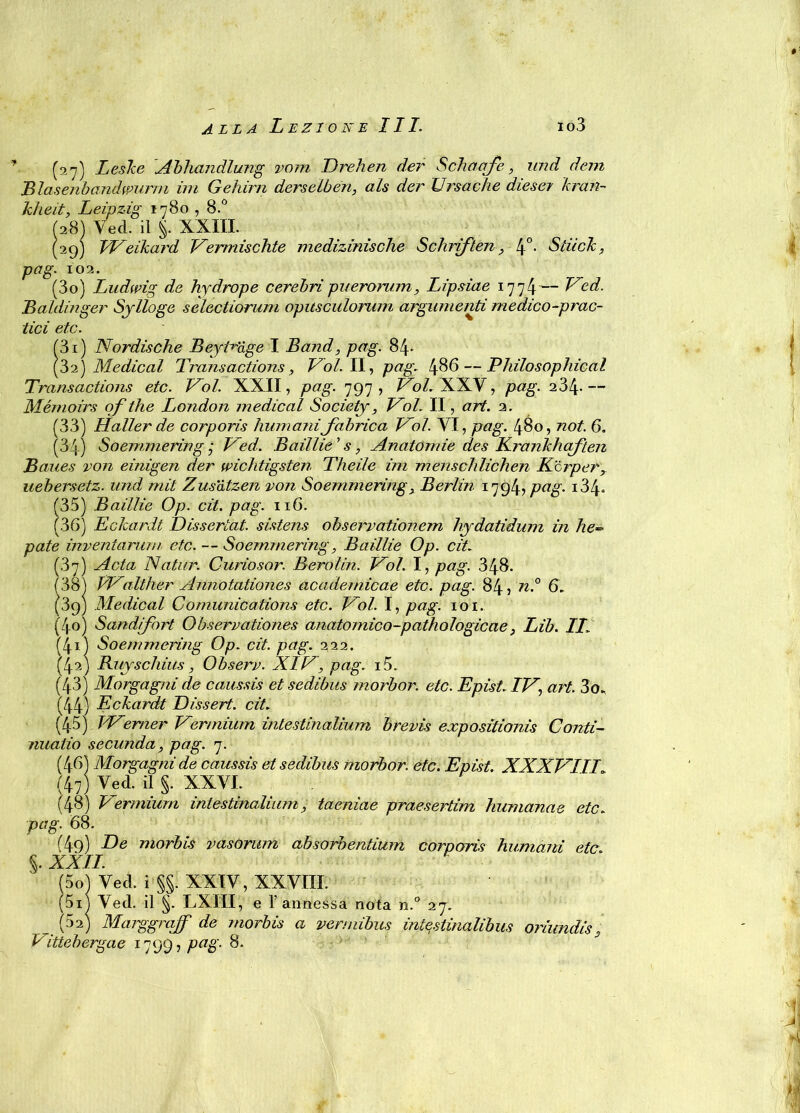 ALLA LEZIONE III. 103
(27) Leske Abhandlung vom Drehen der Schaafe, und dem
Blasenbandwurm im Gehirn derselben, als der Ursache dieser kran-
kheit, Leipzig 1780, 8.°
(28) Ved. il §. XXIII.
(29) Weikard Vermischte medizinische Schriften, 4°. Stück,
pag. 102.
(30) Ludwig de hydrope cerebri puerorum, Lipsiae 1774 — Ved.
Baldinger Sylloge selectiorum opusculorum argumenti medico-prac-
tici etc.
(31) Nordische Beyträge I Band, pag. 84.
(32) Medical Transactions, Vol. II, pag. 486 — Philosophical
Transactions etc. Vol. XXII, pag. 797, Vol. XXV, pag. 234. —
Mémoirs of the London medical Society, Vol. II, art. 2.
(33) Haller de corporis humani fabrica Vol. VI, pag. 480, not. 6.
(34) Soemmering; Ved. Baillie's, Anatomie des Krankhaften
Baues von einigen der wichtigsten Theile im menschlichen Körper,
uebersetz. und mit Zusätzen von Soemmering, Berlin 1794, pag. 134.
(35) Baillie Op. cit. pag. 116.
(36) Eckardt Dissertat. sistens observationem hydatidum in he-
pate inventarum etc. — Soemmering, Baillie Op. cit.
(37) Acta Natur. Curiosor. Berolin. Vol. I, pag. 348.
(38) Walther Annotationes academicae etc. pag. 84, n.° 6.
(39) Medical Comunications etc. Vol. I, pag. 101.
(40) Sandifort Observationes anatomico-pathologicae, Lib. II.
(41) Soemmering Op. cit. pag. 222.
(42) Ruyschius, Observ. XIV, pag. 15.
(43) Morgagni de caussis et sedibus morbor. etc. Epist. IV, art. 30.
(44) Eckardt Dissert. cit.
(45) Werner Vermium intestinalium brevis expositionis Conti-
nuatio secunda, pag. 7.
(46) Morgagni de caussis et sedibus morbor. etc. Epist. XXXVIII.
(47) Ved. il §. XXVI.
(48) Vermium intestinalium, taeniae praesertim humanae etc.
pag. 68.
(49) De morbis vasorum absorbentium corporis humani etc.
§. XXII.
(50) Ved. i §§. XXIV, XXVIII.
(51) Ved. il §. LXIII, e l'annessa nota n.° 27.
(52) Marggraff de morbis a vermibus intestinalibus oriundis,
Vittebergae 1799, pag. 8.